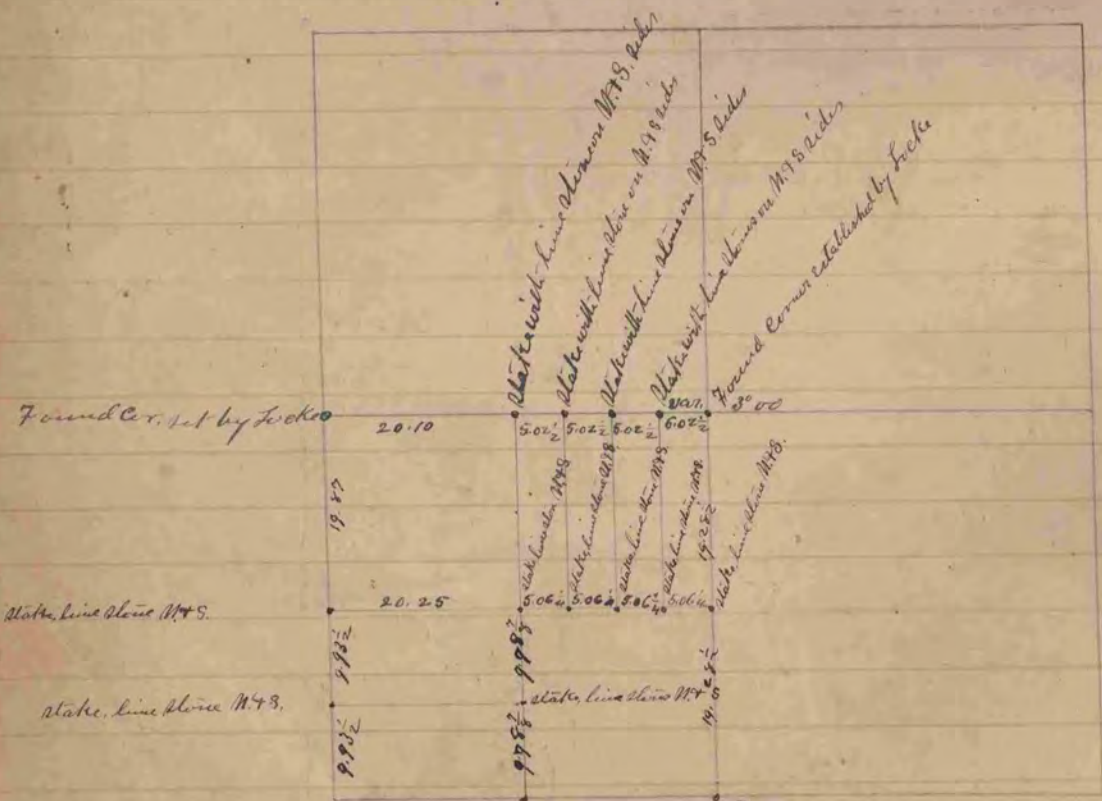 Stake with lime stone on N. & S. sides
Stake with lime stone on N. & S sides
Stake with lime stone on N. & S. sides
Stake with lime stones on N. & S sides
Found Corner established by Locke
Found Cor. set by Locke
20.10
5.02½
5.02½
5.02½
5.02½
Var.
3° 00
19.87
stake, lime stone N. & S.
stake, lime stone N. & S.
stake, lime stone N. & S.
stake, lime stone N. & S.
19.28½
stake, lime stone N. & S.
stake, lime stone N. & S.
20.25
5.06¼
5.06¼
5.06¼
5.06¼
9.93½
9.78⅞
19.28½
stake, lime stone N. & S.
stake, lime stones N. & S
9.93½
9.78⅞